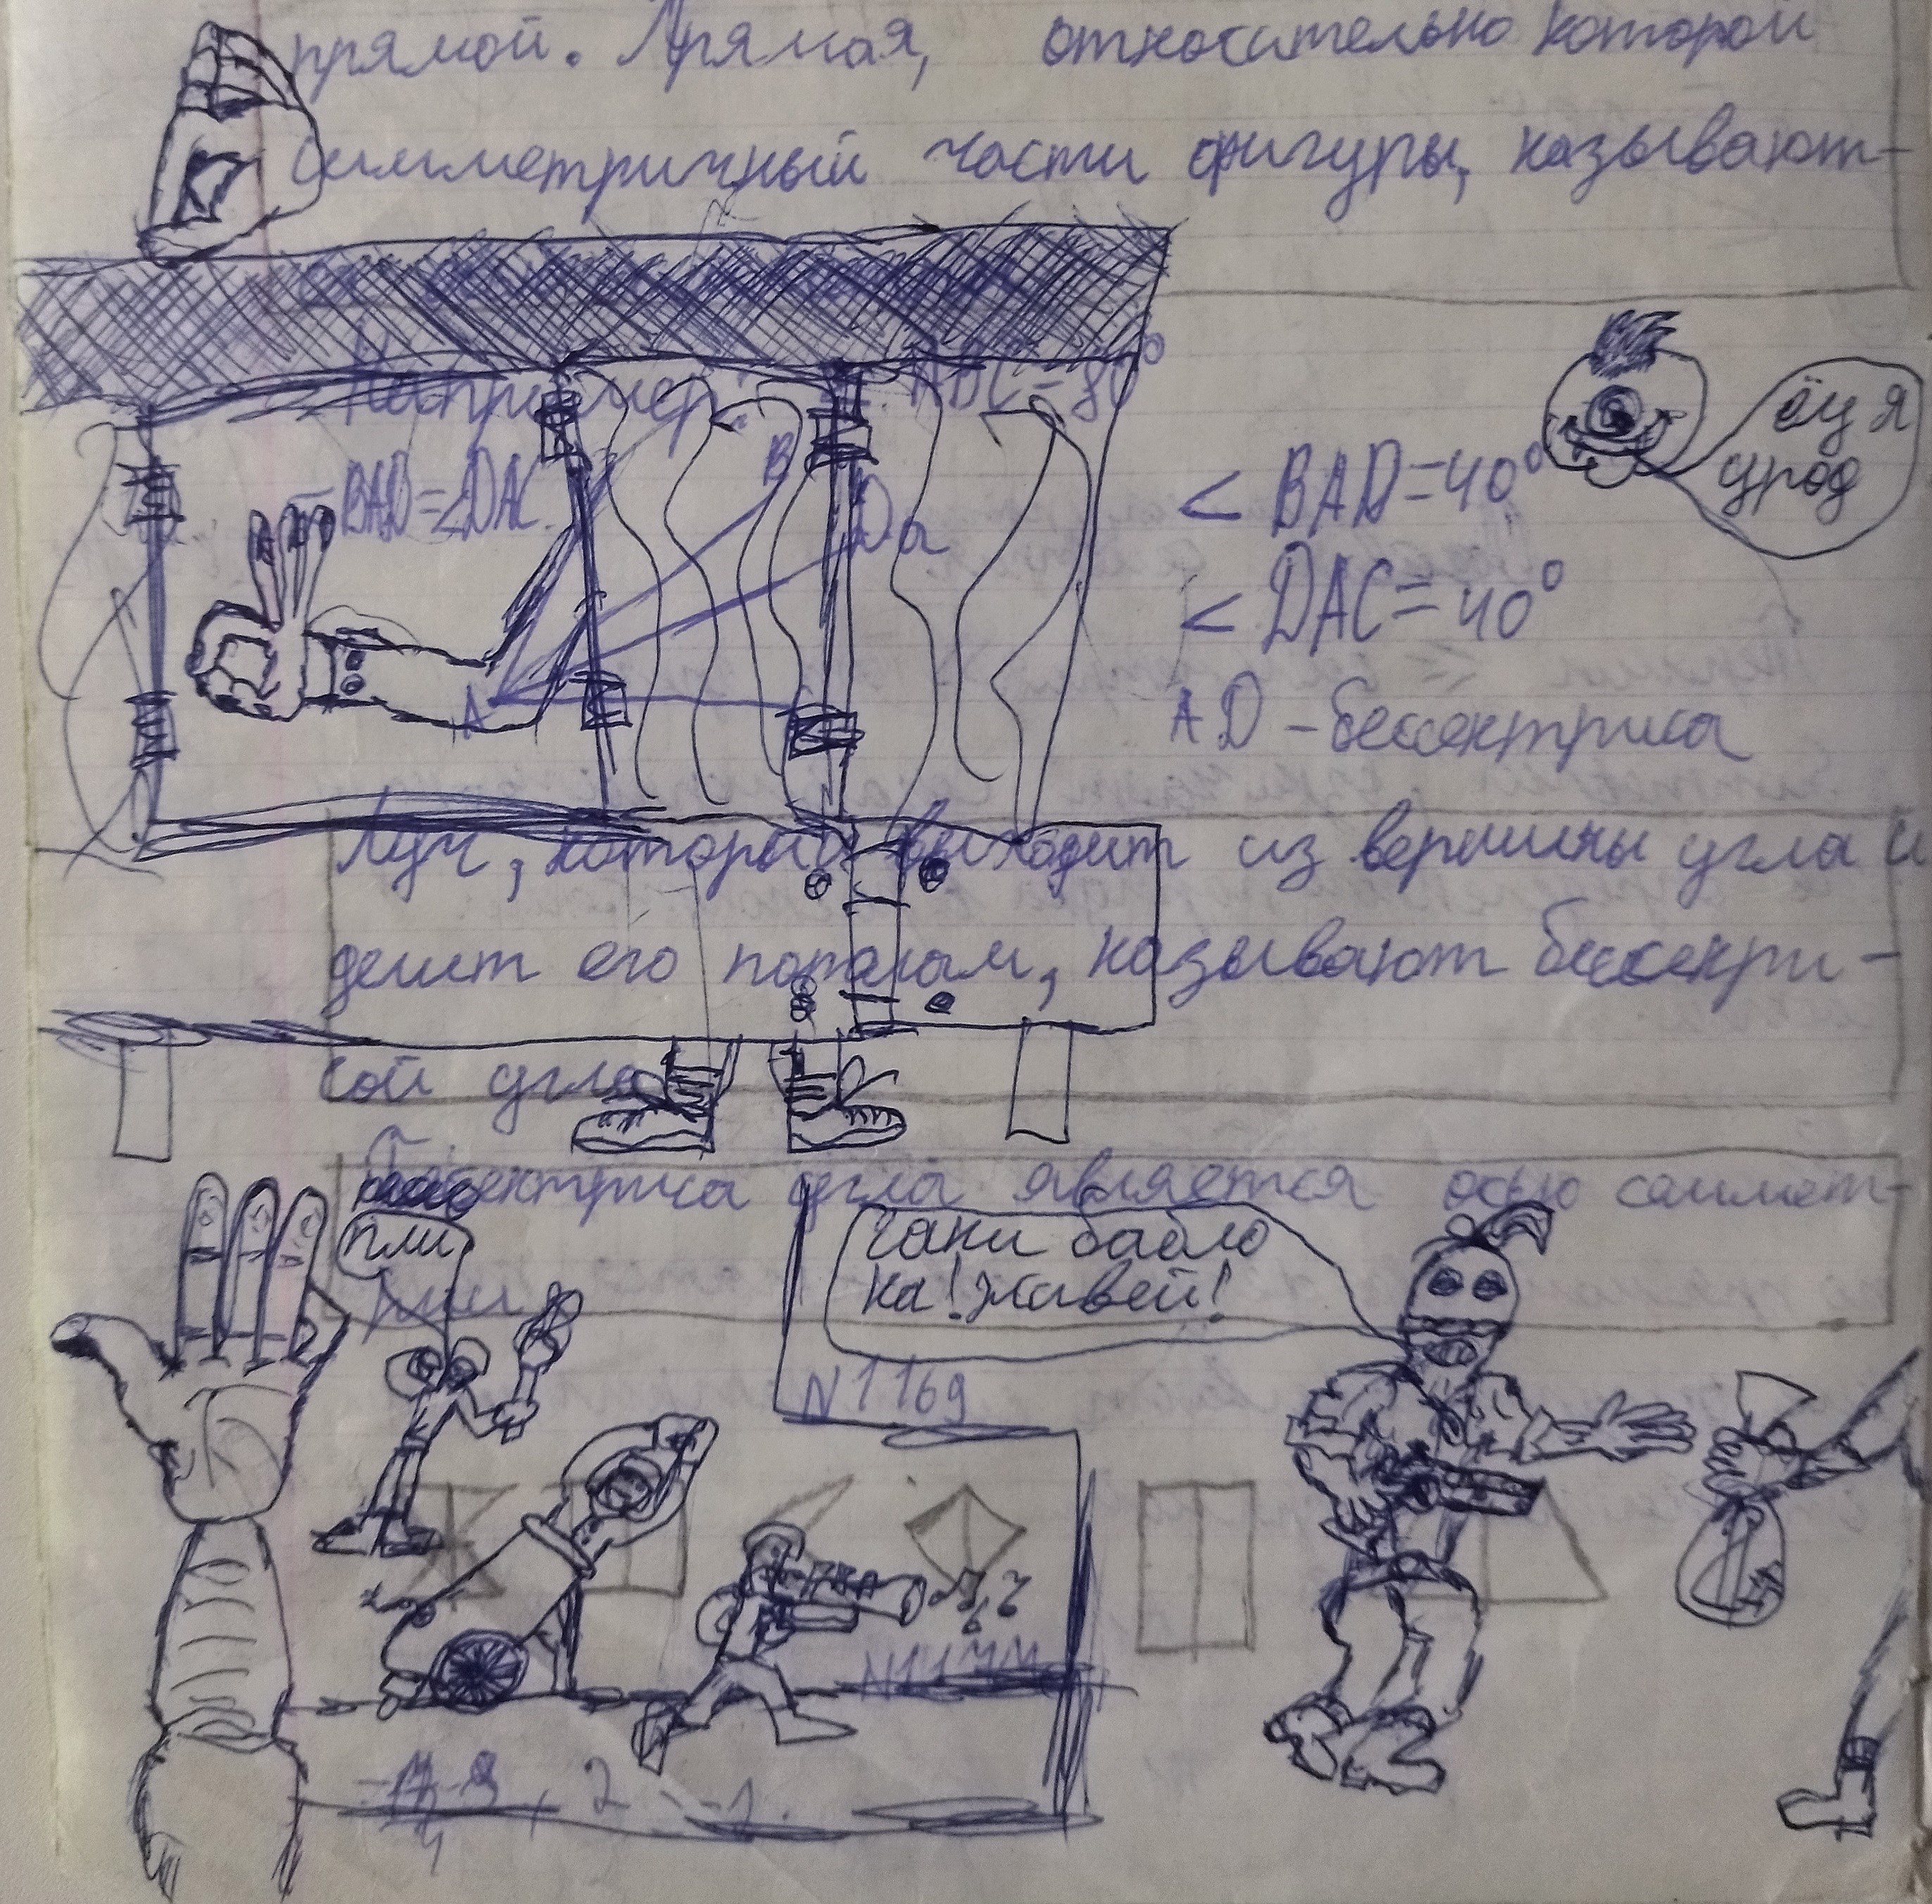 прямой. Прямая, относительно которой
симметричный части фигуры, называют-
Например: ∠ ADC = 80°
∠BAD = ∠DAC
B
D a
A
< BAD = 40°
< DAC = 40°
AD - бессектриса
ёу я
урод
Луч, который выходит из вершины угла и
делит его пополам, называют бессектри-
сой угла
Бессектриса угла является осью симмет-
пли
гони бабло
на! жавей!
N1169